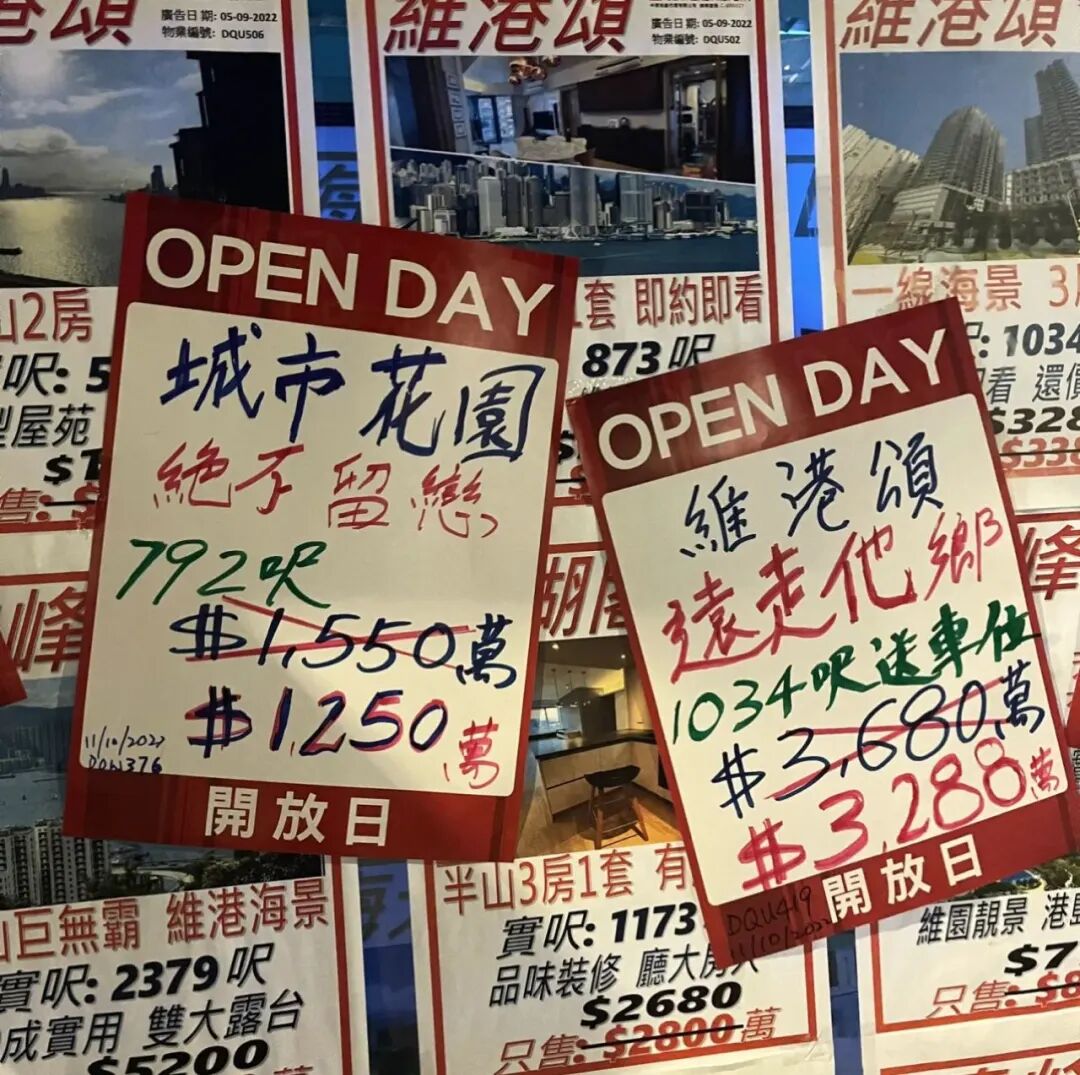 維港頌
廣告日期: 05-09-2022
物業編號: DQU506
維港頌
廣告日期: 05-09-2022
物業編號: DQU502
維港頌
山2房
呎: 5
型屋苑
$1
售:
套 即約即看
873 呎
一線海景 3
: 1034
看 還價
$328
$338
OPEN DAY
城市花園
絕不留戀
792呎
$1,550萬
$1,250萬
11/10/2022
DQW376
開放日
OPEN DAY
維港頌
遠走他鄉
1034呎送車位
$3,680萬
$3,288萬
DQU419
11/10/2022
開放日
峰
山巨無霸 維港海景
實呎: 2379 呎
成實用 雙大露台
$5200
萬
半山3房1套 有
實呎: 1173
品味裝修 廳大房大
$2680
只售: $2800 萬
峰
維園靚景 港島
$7
只售: $8